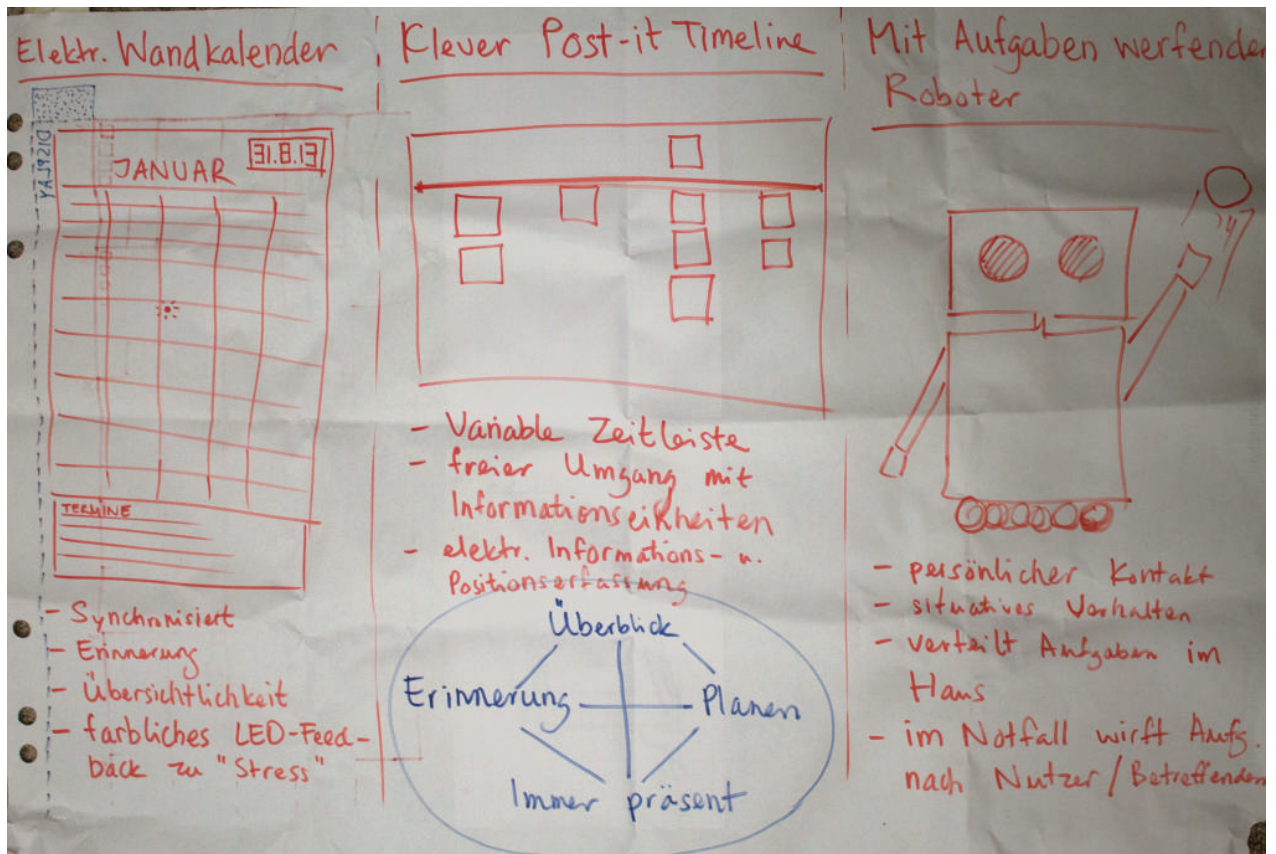 Elektr. Wandkalender
DISPLAY
JANUAR
31.8.13
TERMINE
- Synchronisiert
- Erinnerung
- Übersichtlichkeit
- farbliches LED-Feed-
back zu "Stress"
Klever Post-it Timeline
- Variable Zeitleiste
- freier Umgang mit
Informationseikheiten
- elektr. Informations- u.
Positionserfassung
Überblick
Erinnerung
Planen
Immer präsent
Mit Aufgaben werfender
Roboter
- persönlicher Kontakt
- situatives Verhalten
- verteilt Aufgaben im
Haus
- im Notfall wirft Aufg.
nach Nutzer / Betreffenden